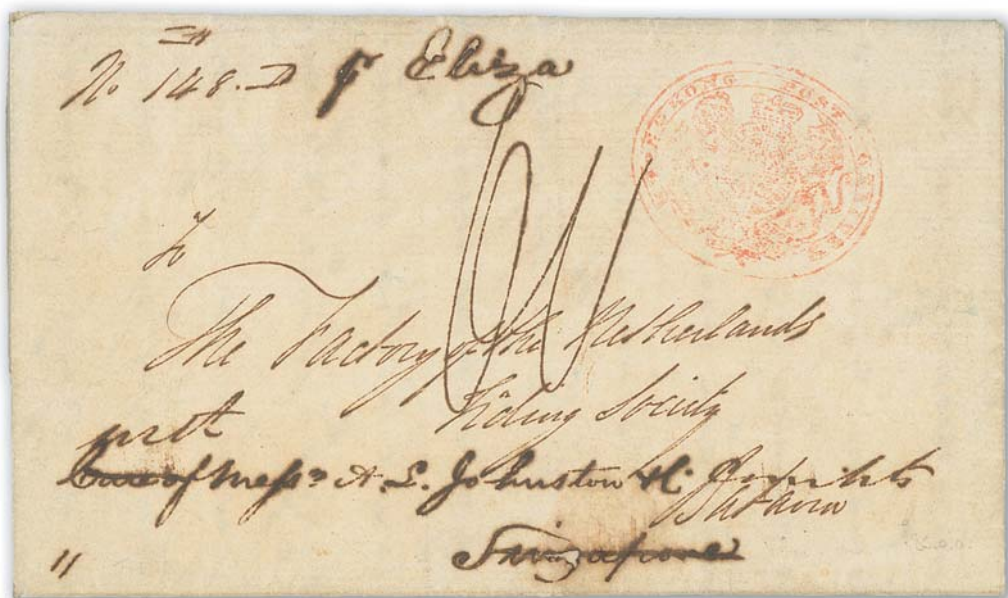 No. 148. D pr Eliza
HONG KONG POST OFFICE
To
The Factory of the Netherlands
Trading Society
Care of Messrs A. L. Johnston & Co
Batavia
Singapore
"